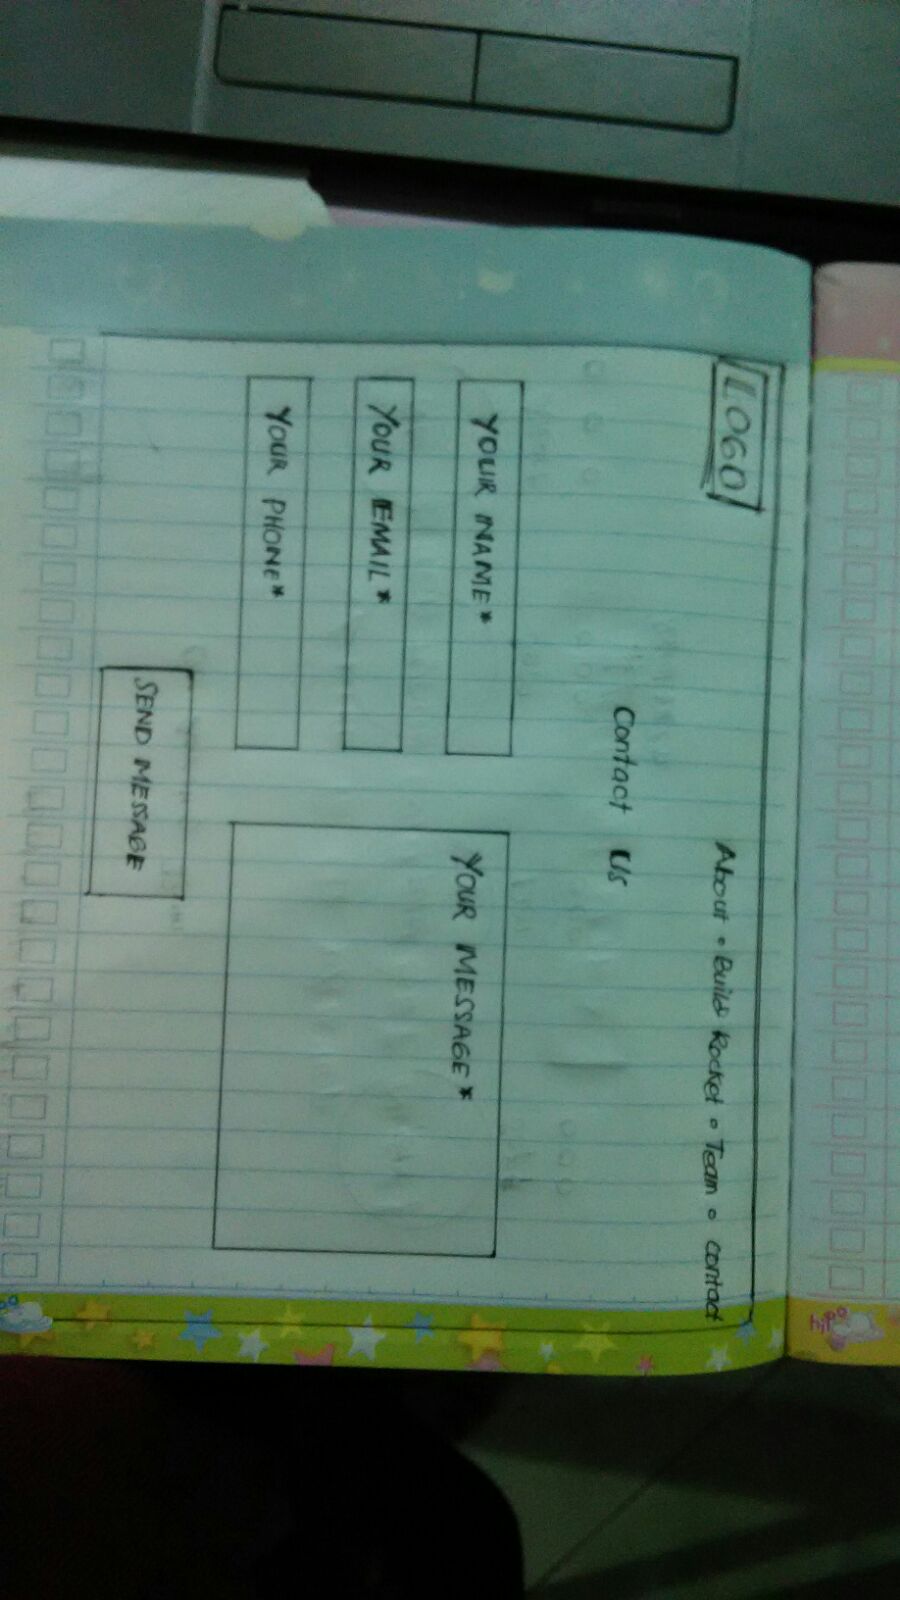 LOGO
About • Build Rocket • Team • contact
Contact Us
YOUR NAME*
YOUR EMAIL*
YOUR PHONE*
YOUR MESSAGE*
SEND MESSAGE